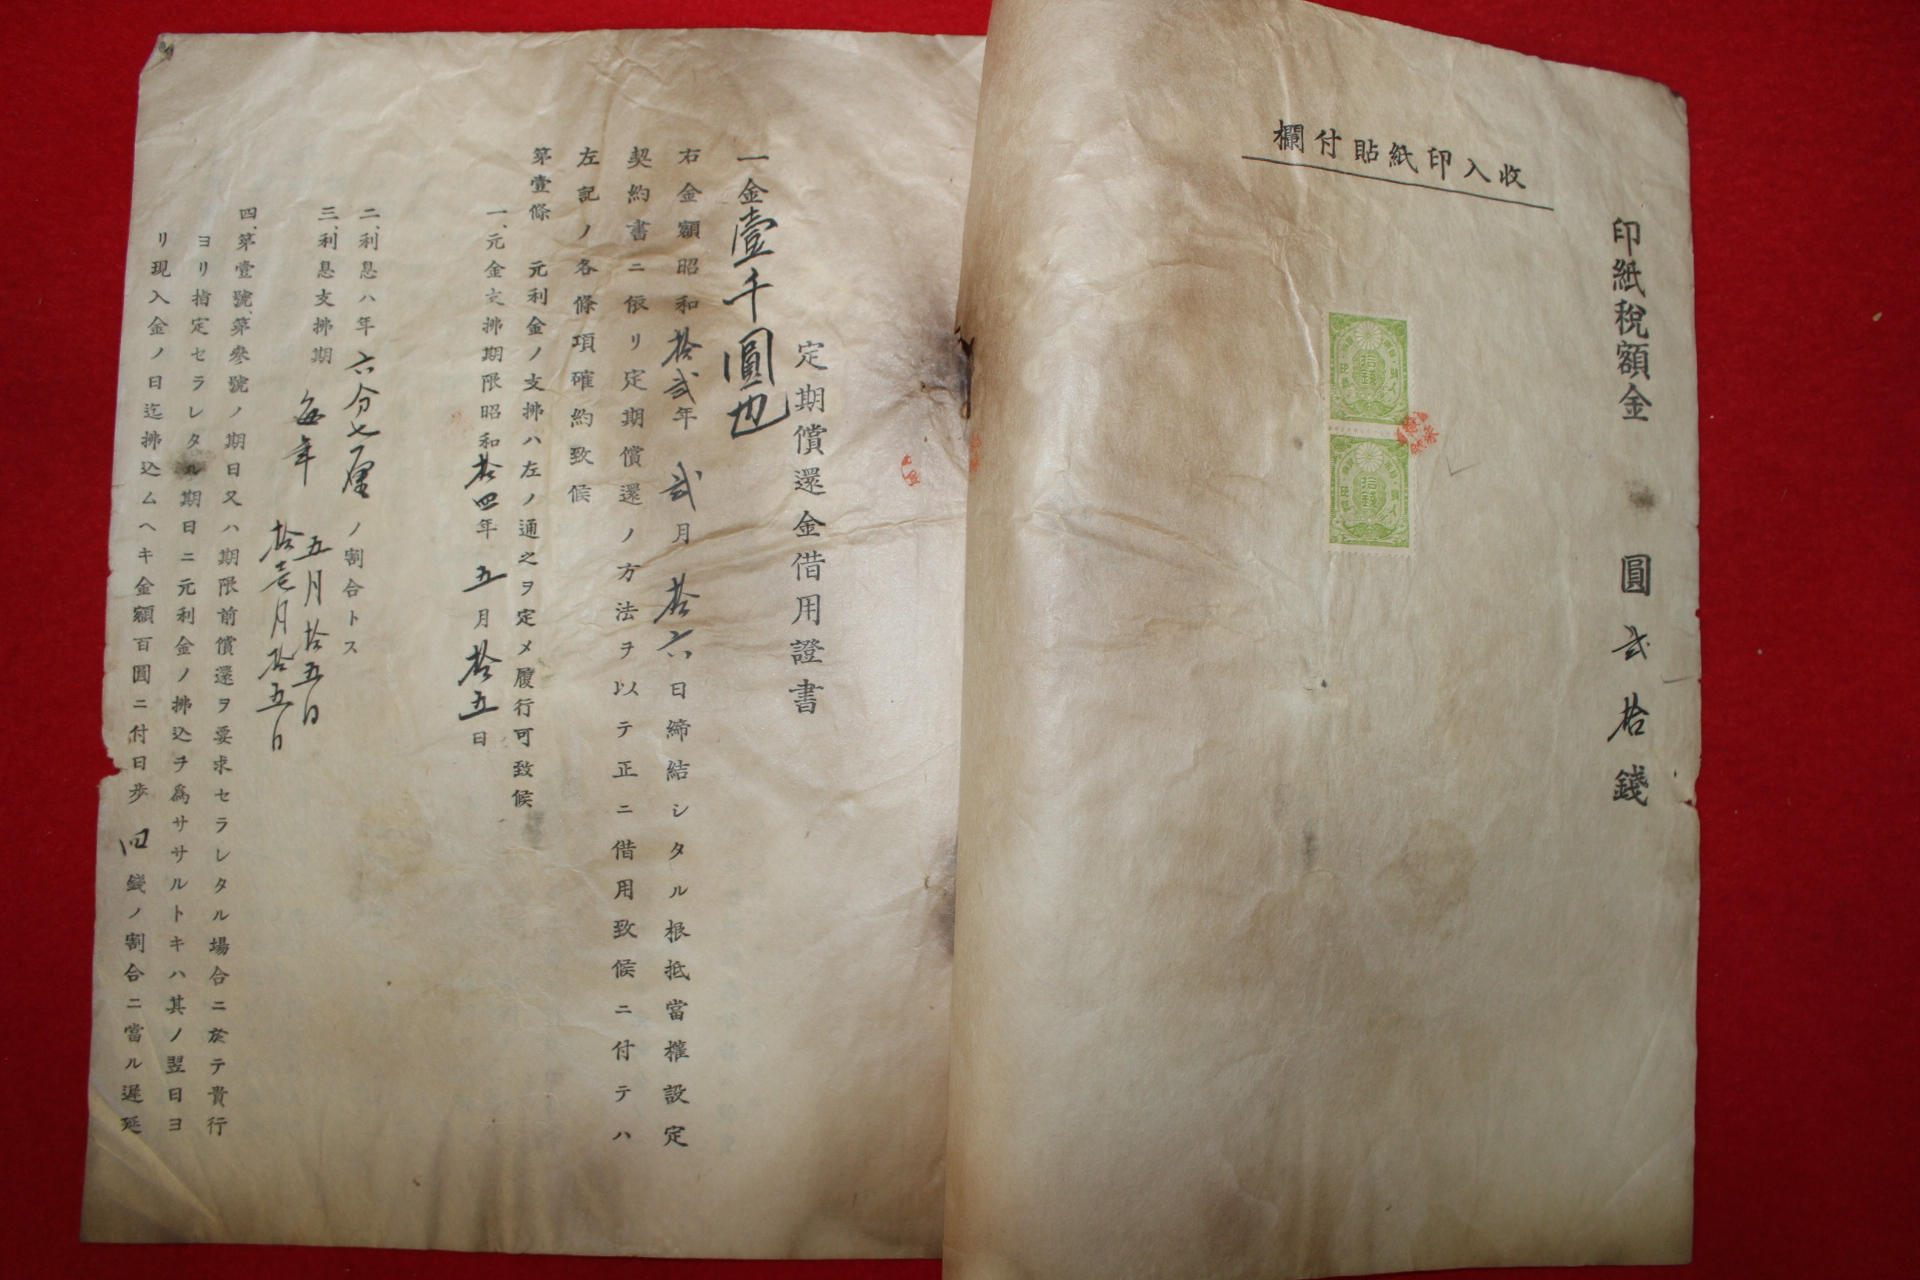 印紙稅額金 圓貳拾錢
收入印紙貼付欄
拾錢
拾錢
定期償還金借用證書
一金壹千圓也
右金額昭和拾貳年貳月拾六日締結シタル根抵當權設定
契約書ニ依リ定期償還ノ方法ヲ以テ正ニ借用致候ニ付テハ
左記ノ各條項確約致候
第壹條 元利金ノ支拂ハ左ノ通之ヲ定メ履行可致候
一、元金支拂期限昭和拾四年五月拾五日
二、利息ハ年六分七厘ノ割合トス
三、利息支拂期 每年 五月拾五日
拾壱月拾五日
四、第壹號、第參號ノ期日又ハ期限前償還ヲ要求セラレタル場合ニ於テ貴行
ヨリ指定セラレタル期日ニ元利金ノ拂込ヲ爲ササルトキハ其ノ翌日ヨ
リ現入金ノ日迄拂込ムヘキ金額百圓ニ付日步四錢ノ割合ニ當ル遲延